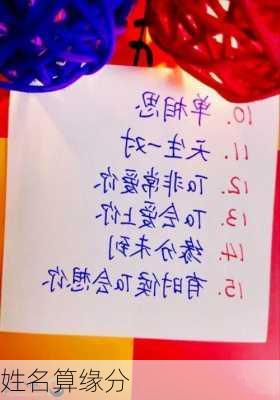 10. 单相思
11. 天生一对
12. Ta非常爱你
13. Ta会爱上你
14. 缘分未到
15. 有时候Ta会想你
姓名算缘分